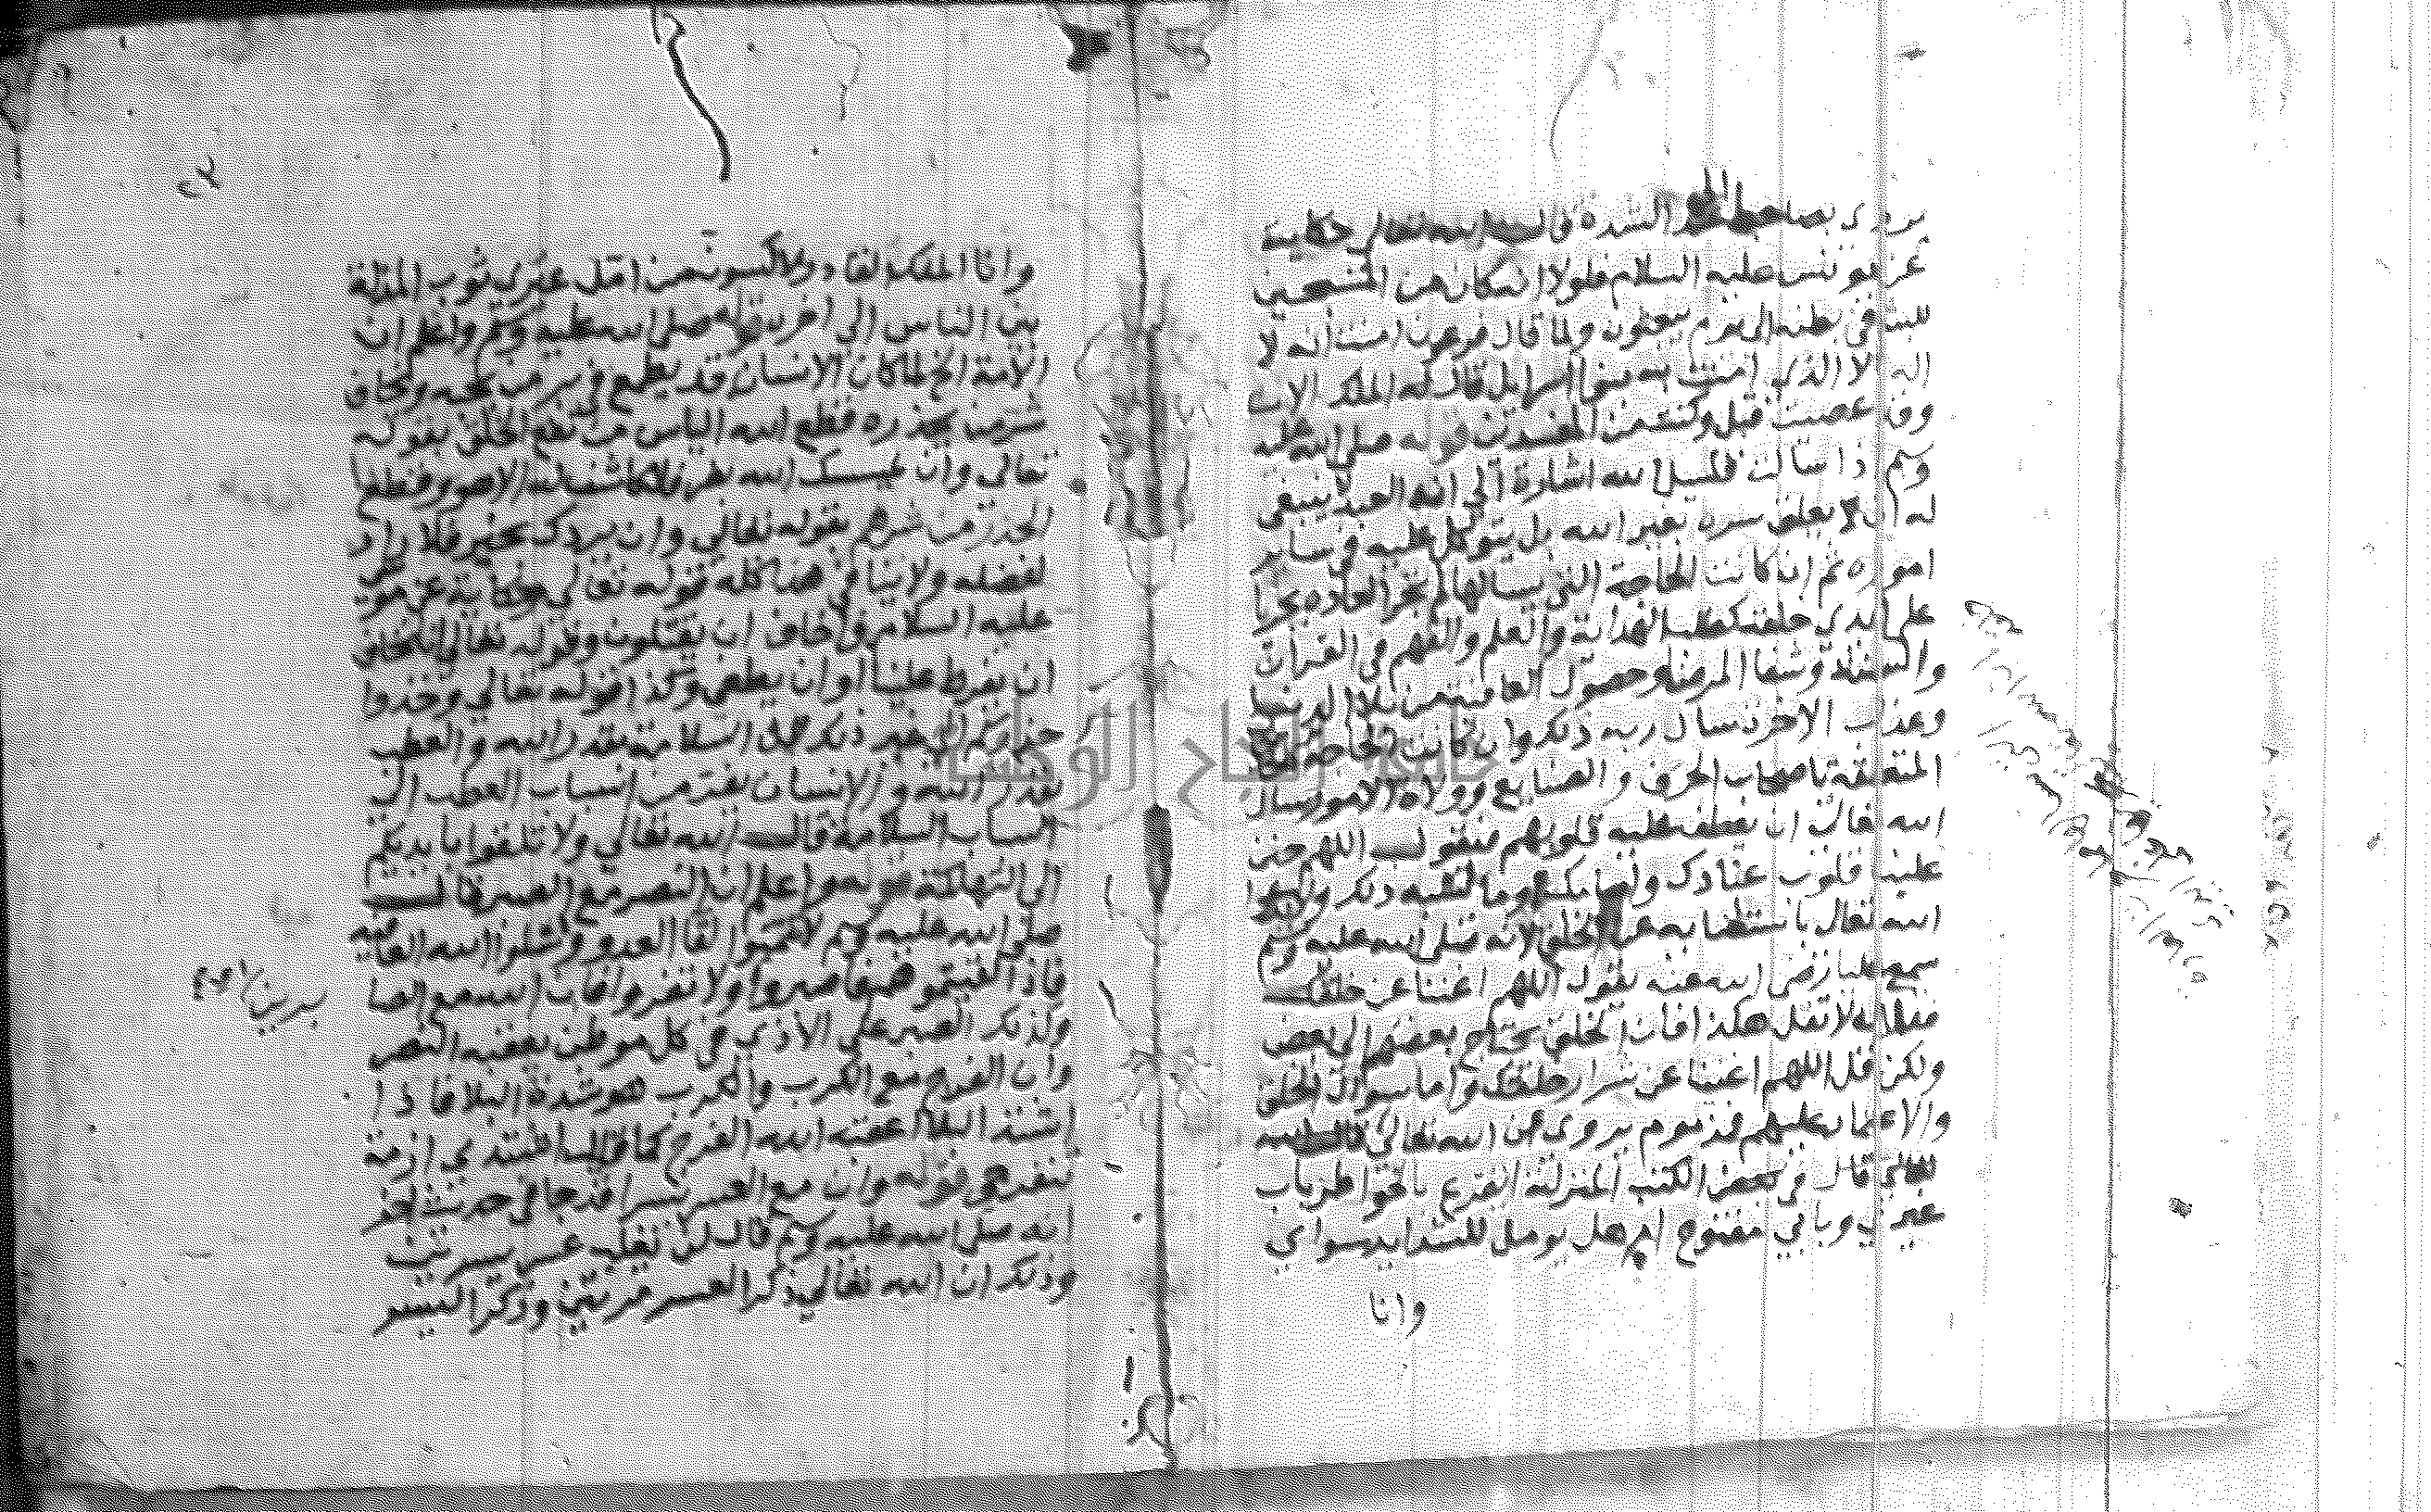 الشدة قال الله تعالى حكاية
عن يونس عليه السلام فلولا انه كان من المسبحين
للبث في بطنه الى يوم يبعثون ولما قال فرعون امنت انه لا
اله الا الذي امنت به بنوا اسرايل قال له الملك الان
وقد عصيت قبل وكنت من المفسدين قوله صلى الله عليه
وسلم اذا سالت فاسيل الله اشارة الى ان العبد ينبغي
له ان لا يعلق سره بغير الله بل يتوكل عليه في ساير
اموره ثم ان كانت الحاجة التي يسالها لم تجر العادة بجريانها
على ايدي خلقه كطلب الهداية والعلم والفهم في القران
والسنة وشفا المرضا وحصول العافية من بلاء الدنيا
وعذاب الاخرة سال ربه ذلك وان كانت الحاجة
المتعلقة باصحاب الحرف والصنايع وولاة الامور سال
الله تعالى ان يعطف عليه قلوبهم فيقول اللهم حنن
علينا قلوب عبادك وامايك وما اشبه ذلك ولا يدعو
الله تعالى باستغنايه عن الخلق لانه صلى الله عليه وسلم
سمع عليا رضي الله عنه يقول اللهم اغننا عن خلقك
فقال له لا تقل هكذا فان الخلق يحتاج بعضهم الى بعض
ولكن قل اللهم اغننا عن شرار خلقك واما سوال الخلق
والاعتماد عليهم فمذموم يروى عن الله تعالى
قال في بعض الكتب المنزلة ايقرع بالخواطر باب
غيري وبابي مفتوح ام هل يومل للشدايد سواي
وانا
٢٧
وانا الملك القادر ولاكسون من امل غيري ثوب المذلة
بين الناس الى اخره قوله صلى الله عليه وسلم واعلم ان
الامة الخ لما كان الانسان قد يطمع في بر من يحبه ويخاف
شر من يحذره قطع الله الياس من نفع الخلق بقوله
تعالى وان يمسسك الله بضر فلا كاشف له الا هو وقطع
الحذر من شرهم بقوله تعالى وان يردك بخير فلا راد
لفضله ولا ينافي هذا كله قوله تعالى حكاية عن موسى
عليه السلام فاخاف ان يقتلون وقوله تعالى اننا نخاف
ان يفرط علينا او ان يطغى وكذا قوله تعالى وخذوا
حذركم الى غير ذلك بل السلامة بقدر الله والعطب
بقدر الله والانسان يفر من اسباب العطب الى
اسباب السلامة قال الله تعالى ولا تلقوا بايديكم
الى التهلكة قوله واعلم ان النصر مع الصبر قال
صلى الله عليه وسلم لا تتمنوا لقا العدو واسلوا الله العافية
فاذا لقيتموهم فاصبروا ولا تفروا فان الله مع الصا
برين
وكذلك الصبر على الاذى في كل موطن يعقبه النصر
وان الفرج مع الكرب والكرب هو شدة البلا فاذا
اشتد البلا اعقبه الله الفرج كما قال اشتدي ازمة
تنفرجي قوله وان مع العسر يسرا قد جا في حديث اخر
انه صلى الله عليه وسلم قال لن يغلب عسر يسرين
وذلك ان الله تعالى ذكر العسر مرتين وذكر اليسر
جامعة النجاح الوطنية